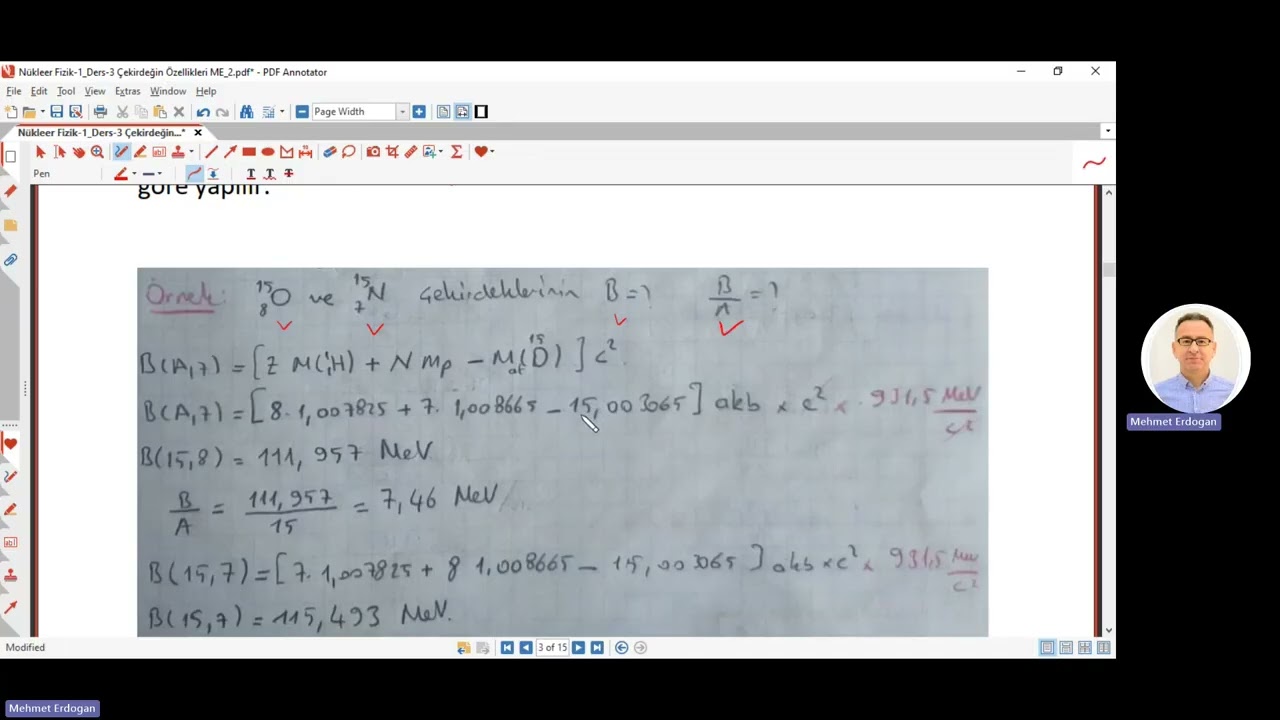 Nükleer Fizik-1_Ders-3 Çekirdeğin Özellikleri ME_2.pdf* - PDF Annotator
File Edit Tool View Extras Window Help
Page Width
Nükleer Fizik-1_Ders-3 Çekirdeğin...*
Pen
göre yapılır.
Örnek: ¹⁵₈O ve ¹⁵₇N Çekirdeklerinin B=? B/A=?
B(A,7) = [Z M(¹₁H) + N mp - Mat(¹⁵O)] c²
B(A,7) = [8. 1,007825 + 7. 1,008665 - 15,003065] akb x c² x 931,5 MeV/c²
B(15,8) = 111,957 MeV
B/A = 111,957/15 = 7,46 MeV
B(15,7) = [7. 1,007825 + 8 1,008665 - 15,003065] akb x c² x 931,5 MeV/c²
B(15,7) = 115,493 MeV.
Modified
3 of 15
Mehmet Erdogan
Mehmet Erdogan